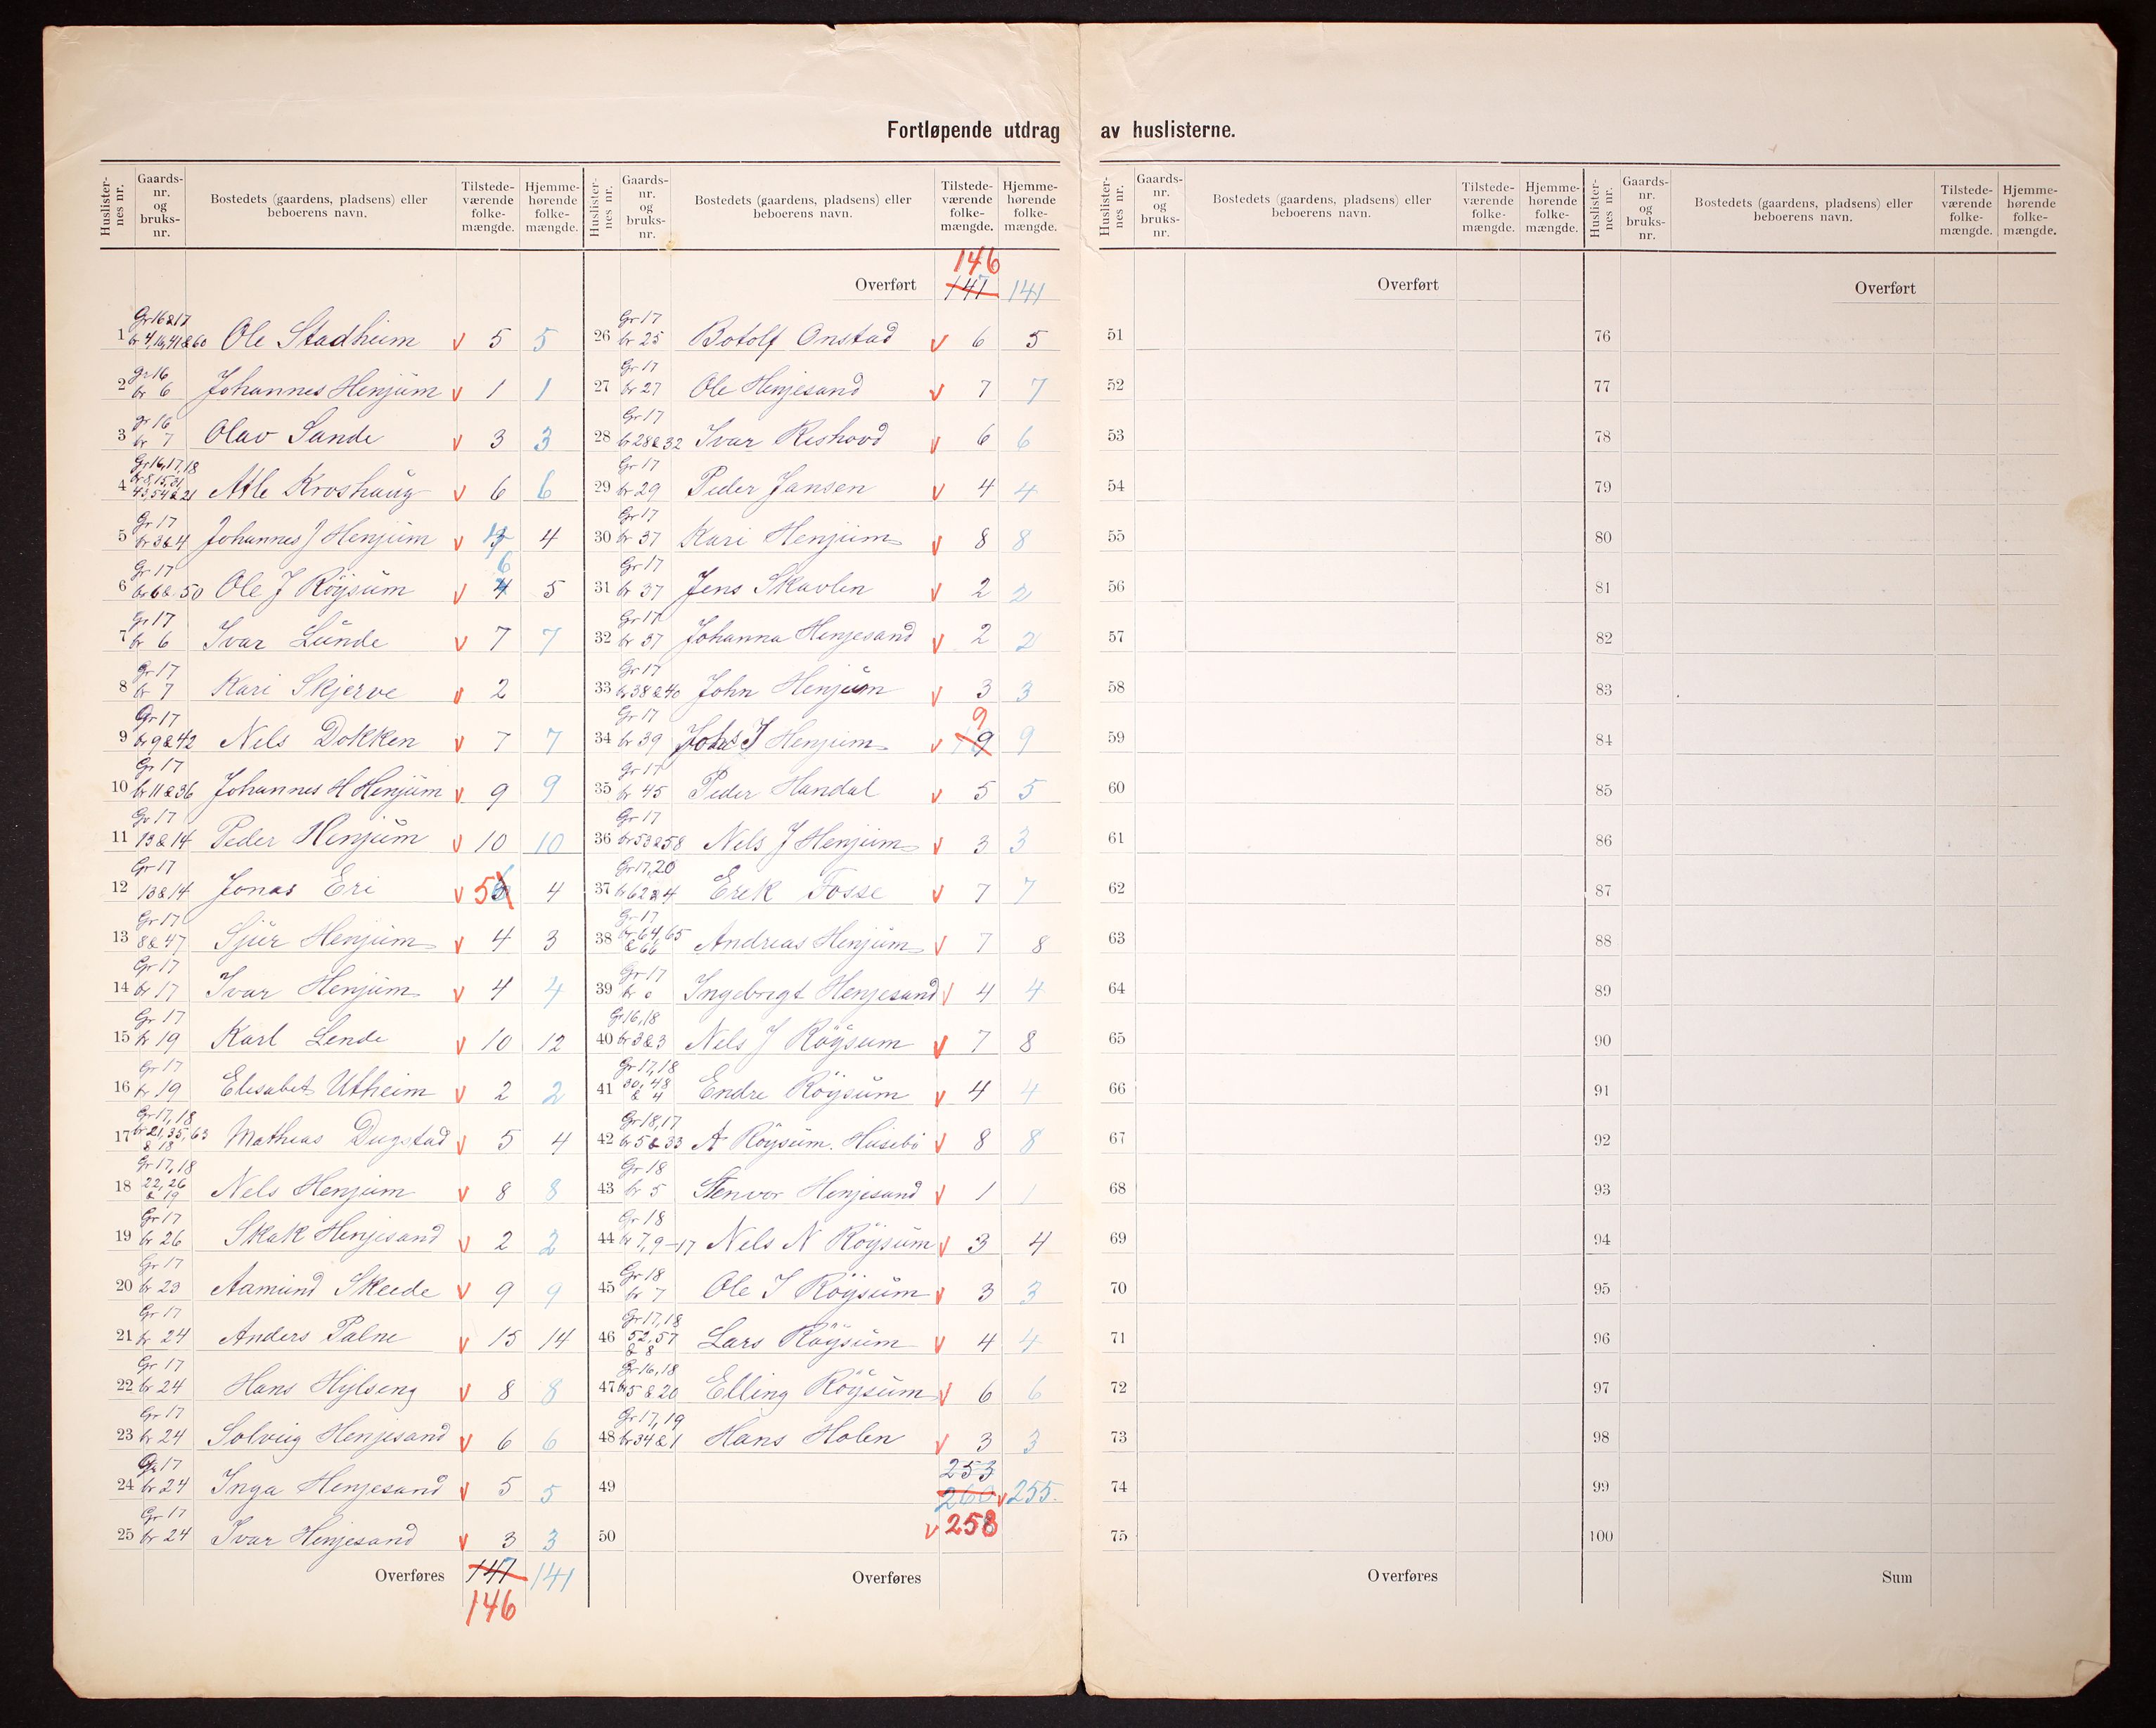 Fortløpende utdrag av huslisterne.
Huslisternes nr. Gaards-nr. og bruks-nr. Bostedets (gaardens, pladsens) eller beboerens navn. Tilstede-værende folke-mængde. Hjemme-hørende folke-mængde.
1 Gr 16&17 br 4,16,41&60 Ole Stadheim v 5 5
2 gr 16 br 6 Johannes Henjum v 1 1
3 gr 16 br 7 Olav Sande v 3 3
4 Gr 16,17,18 br 8,15,31, 43,54&21 Atle Kroshaug v 6 6
5 Gr 17 br 3&4 Johannes J Henjum v 4 4
6 Gr 17 br 6&50 Ole J Röysum v 6 4 5
7 Gr 17 br 6 Ivar Lunde v 7 7
8 Gr 17 br 7 Kari Skjerve v 2
9 Gr 17 br 9&42 Nels Dokken v 7 7
10 Gr 17 br 11&36 Johannes H Henjum v 9 9
11 Gr 17 13&14 Peder Henjum v 10 10
12 Gr 17 13&14 Jonas Eri v 5 4
13 Gr 17 8&47 Sjur Henjum v 4 3
14 Gr 17 br 17 Ivar Henjum v 4 4
15 Gr 17 br 19 Karl Lende v 10 12
16 Gr 17 br 19 Elisabet Utheim v 2 2
17 Gr 17,18 br 21,35,63 & 18 Mathias Dugstad v 5 4
18 Gr 17,18 22,26 & 19 Nels Henjum v 8 8
19 Gr 17 br 26 Skak Henjesand v 2 2
20 Gr 17 br 23 Aamund Skeede v 9 9
21 Gr 17 br 24 Anders Palne v 15 14
22 Gr 17 br 24 Hans Hylseng v 8 8
23 Gr 17 br 24 Solveig Henjesand v 6 6
24 Gr 17 br 24 Inga Henjesand v 5 5
25 Gr 17 br 24 Ivar Henjesand v 3 3
Overføres 147 141
146
Huslisternes nr. Gaards-nr. og bruks-nr. Bostedets (gaardens, pladsens) eller beboerens navn. Tilstede-værende folke-mængde. Hjemme-hørende folke-mængde.
146
Overført 141 141
26 Gr 17 br 25 Botolf Onstad v 6 5
27 Gr 17 br 27 Ole Henjesand v 7 7
28 Gr 17 br 28&32 Ivar Rishovd v 6 6
29 Gr 17 br 29 Peder Jansen v 4 4
30 Gr 17 br 37 Kari Henjum v 8 8
31 Gr 17 br 37 Jens Skavlen v 2 2
32 Gr 17 br 37 Johanna Henjesand v 2 2
33 Gr 17 br 38&40 John Henjum v 3 3
34 Gr 17 br 39 Johs J Henjum v 9 9
35 Gr 17 br 45 Peder Handal v 5 5
36 Gr 17 br 53&58 Nels J Henjum v 3 3
37 Gr 17,20 br 62&4 Erek Fosse v 7 7
38 Gr 17 br 64,65 & 66 Andreas Henjum v 7 8
39 Gr 17 br 0 Ingebrigt Henjesand v 4 4
40 Gr 16,18 br 3&3 Nels J Röysum v 7 8
41 Gr 17,18 30,48 & 4 Endre Röysum v 4 4
42 Gr 18,17 br 5&33 A Röysum. Husebö v 8 8
43 Gr 18 br 5 Stenvor Henjesand v 1 1
44 Gr 18 br 7,9-17 Nels N Röysum v 3 4
45 Gr 18 br 7 Ole I Röysum v 3 3
46 Gr 17,18 52,57 & 8 Lars Röysum v 4 4
47 Gr 16,18 br 5&20 Elling Röysum v 6 6
48 Gr 17,19 br 34&1 Hans Holen v 3 3
253
49 260 v 255.
50 v 258
Overføres
Huslisternes nr. Gaards-nr. og bruks-nr. Bostedets (gaardens, pladsens) eller beboerens navn. Tilstede-værende folke-mængde. Hjemme-hørende folke-mængde.
Overført
51
52
53
54
55
56
57
58
59
60
61
62
63
64
65
66
67
68
69
70
71
72
73
74
75
Overføres
Huslisternes nr. Gaards-nr. og bruks-nr. Bostedets (gaardens, pladsens) eller beboerens navn. Tilstede-værende folke-mængde. Hjemme-hørende folke-mængde.
Overført
76
77
78
79
80
81
82
83
84
85
86
87
88
89
90
91
92
93
94
95
96
97
98
99
100
Sum